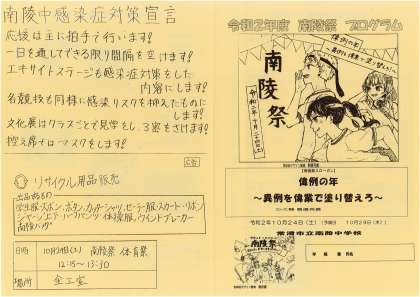 南陵中感染症対策宣言
応援は主に拍手で行います!
一日を通してできる限り間隔を空けます!
エキサイトステージも感染症対策をした
内容にします!
名競技も同様に感染リスクを抑えたものに
します!
文化展はクラスごとで見学をし、3密をさけます!
控え席ではマスクをします!
広告
リサイクル用品販売
学生服・ズボン、ボタン、カッターシャツ、セーラー服・スカート・リボン
体操服、ウインドブレーカー
南陵バッグ
日時 10月24日(土) 南陵祭 体育祭
12:15〜13:30
場所 金工室
令和2年度 南陵祭 プログラム
南陵祭
偉例の年
〜異例を偉業で塗り替えろ〜
令和2年10月24日(土) 10月29日(木)
常滑市立南陵中学校
年 組 氏名